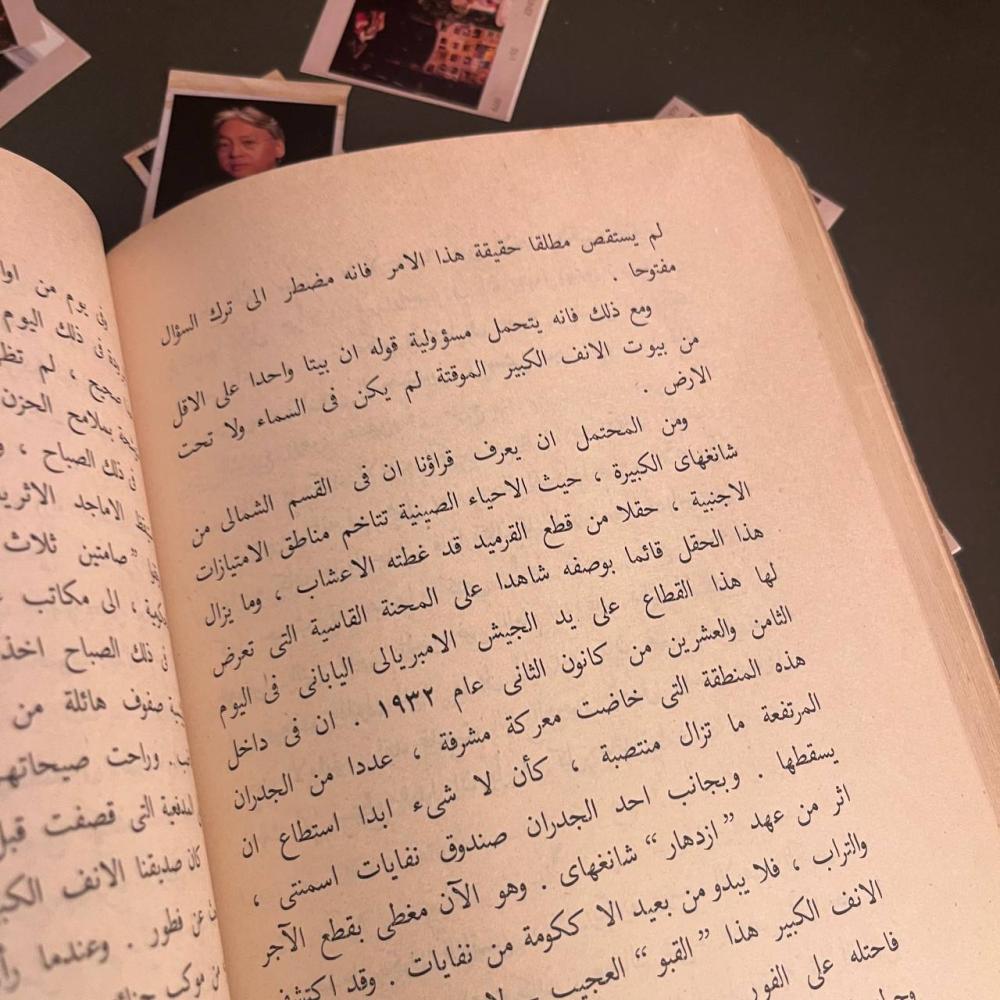 لم يستقص مطلقا حقيقة هذا الامر فانه مضطر الى ترك السؤال
مفتوحا .
ومع ذلك فانه يتحمل مسؤولية قوله ان بيتا واحدا على الاقل
من بيوت الانف الكبير الموقتة لم يكن فى السماء ولا تحت
الارض .
ومن المحتمل ان يعرف قراؤنا ان فى القسم الشمالى من
شانغهاى الكبيرة ، حيث الاحياء الصينية تتاخم مناطق الامتيازات
الاجنبية ، حقلا من قطع القرميد قد غطته الاعشاب ، وما يزال
هذا الحقل قائما بوصفه شاهدا على المحنة القاسية التى تعرض
لها هذا القطاع على يد الجيش الامبريالى اليابانى فى اليوم
الثامن والعشرين من كانون الثانى عام ١٩٣٢ . ان فى داخل
هذه المنطقة التى خاضت معركة مشرفة ، عددا من الجدران
المرتفعة ما تزال منتصبة ، كأن لا شىء ابدا استطاع ان
يسقطها . وبجانب احد الجدران صندوق نفايات اسمنتى ،
اثر من عهد ”ازدهار“ شانغهاى . وهو الآن مغطى بقطع الآجر
والتراب ، فلا يبدو من بعيد الا ككومة من نفايات . وقد اكتشف
الانف الكبير هذا ”القبو“ العجيب
فاحتله على الفور
فى يوم من
فى ذلك اليوم
صحيح ، لم
بملامح الحزن
فى ذلك الصباح ،
الاماجد
”صامتين ثلاث
، الى مكاتب
فى ذلك الصباح
صفوف هائلة من
. وراحت
المدفعية التى قصفت
كان صديقنا الانف
عن فطور . وعندما
من موكب